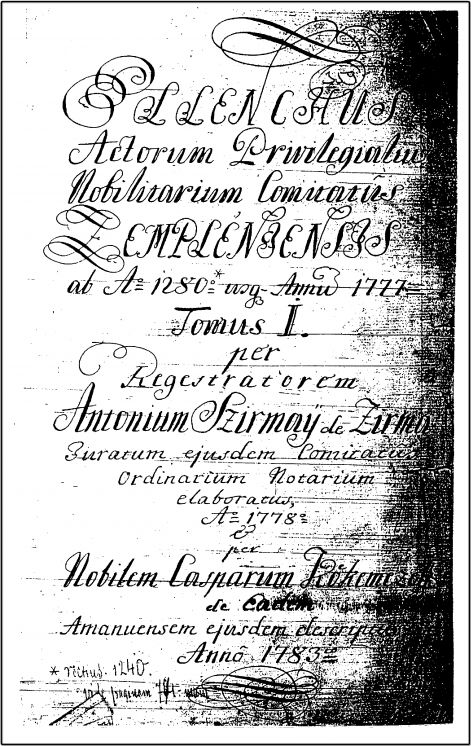 ELLENCHUS
Actorum Privilegialiu
Nobilitarium Comitatûs
ZEMPLÉNIENSIS
ab Aº 1280º* usq Annũ 1777
Tomus I.
per
Regestratorem
Antonium Szirmaÿ de Zirma
Juratum ejusdem Comitatus
Ordinarium Notarium
elaboratus,
Aº 1778º
&
per
Nobilem Casparum
de eadem
Amanuensem ejusdem descriptus
Annô 1783º
* rectius. 1240.